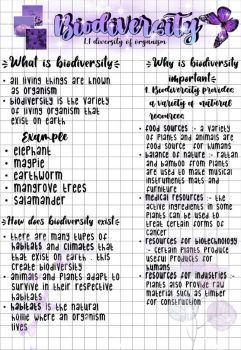 Biodiversity
1.1 diversity of organism
What is biodiversity
• all living things are known
as organism
• biodiversity is the variety
of living organism that
exist on earth
Example
• elephant
• magpie
• earthworm
• mangrove trees
• salamander
How does biodiversity exist
• there are many types of
habitats and climates that
that exist on earth . this
create biodiversity
• animals and plants adapt to
survive in their respective
habitats
• habitats is the natural
home where an organism
lives
Why is biodiversity
important
1. Biodiversity provides
a variety of natural
resources
• food sources : a variety
of plants and animals are
food source for humans
• balance of nature : rattan
and bamboo from plants
are used to make musical
instruments mats and
furniture
• medical resources : the
active ingredients in some
plants can be used to
treat certain forms of
cancer
• resources for biotechnology
: Certain plants produce
useful products for
humans
• resources for industries :
plants also provide raw
material such as timber
for construction